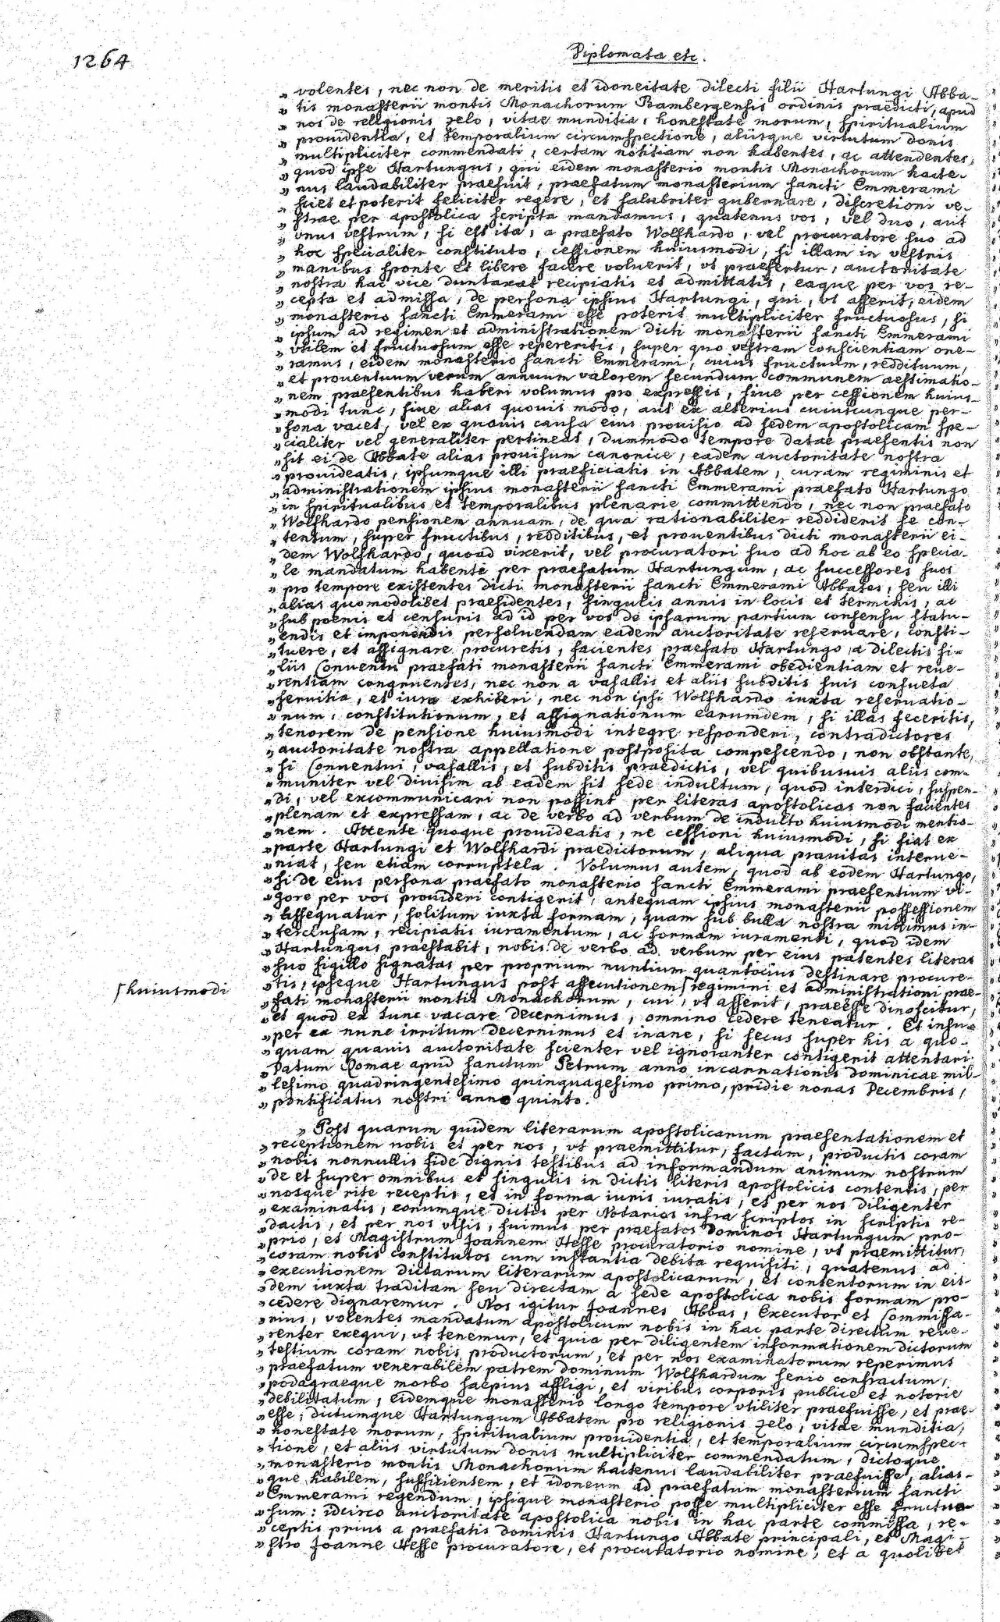 1264
Diplomata etc.
„ volentes, nec non de meritis et idoneitate dilecti filii Hartungi Abba-
„ tis monasterii montis Monachorum Bambergensis ordinis praedicti, apud
„ nos de religionis zelo, vitae munditia, honestate morum, spiritualium
„ prouidentia, et temporalium circumspectione, aliisque virtutum donis
„ multipliciter commendati, certam notitiam non habentes, ac attendentes,
„ quod ipse Hartungus, qui eidem monasterio montis Monachorum hacte-
„ nus laudabiliter praefuit, praefatum monasterium sancti Emmerami
„ sciet et poterit feliciter regere, et salubriter gubernare, discretioni ve-
„ strae per apostolica scripta mandamus, quatenus vos, vel duo, aut
„ vnus vestrum, si est ita, a praefato Wolfhardo, vel procuratore suo ad
„ hoc specialiter constituto, cessionem huiusmodi, si illam in vestris
„ manibus sponte et libere facere voluerit, vt praefertur, auctoritate
„ nostra hac vice duntaxat recipiatis et admittatis, eaque per vos re-
„ cepta et admissa, de persona ipsius Hartungi, qui, vt asserit, eidem
„ monasterio sancti Emmerami esse poterit multipliciter fructuosus, si
„ ipsum ad regimen et administrationem dicti monasterii sancti Emmerami
„ vtilem et fructuosum esse repereritis, super quo vestram conscientiam one-
„ ramus, eidem monasterio sancti Emmerami, cuius fructuum, reddituum,
„ et prouentuum verum annuum valorem secundum communem aestimatio-
„ nem, praesentibus haberi volumus pro expressis, siue per cessionem huius-
„ modi tunc, siue alias quouis modo, aut ex alterius cuiuscunque per-
„ sona vacet, vel ex quauis causa eius prouisio ad sedem apostolicam spe-
„ cialiter vel generaliter pertineat, dummodo tempore datae praesentis non
„ sit ei de Abbate alias prouisum canonice, eadem auctoritate nostra
„ prouideatis, ipsumque illi praeficiatis in Abbatem, curam regiminis et
„ administrationem ipsius monasterii sancti Emmerami praefato Hartungo
„ in spiritualibus et temporalibus plenarie committendo, nec non praefato
„ Wolfhardo pensionem annuam, de qua rationabiliter reddiderit se con-
„ tentum, super fructibus, redditibus, et prouentibus dicti monasterii ei-
„ dem Wolfhardo, quoad vixerit, vel procuratori suo ad hoc ab eo specia-
„ le mandatum habente per praefatum Hartungum, ac successores suos
„ pro tempore existentes dicti monasterii sancti Emmerami Abbates, seu illi
„ alias quomodolibet praesidentes, singulis annis in locis et terminis, ac
„ sub poenis et censuris ad id per vos de ipsarum partium consensu statu-
„ endis et imponendis persoluendam eadem auctoritate reseruare, consti-
„ tuere, et assignare procuretis, facientes praefato Hartungo a dilectis fi-
„ liis Conuentu praefati monasterii sancti Emmerami obedientiam et reue-
„ rentiam congruentes, nec non a vasallis et aliis subditis suis consueta
„ seruitia, et iura exhiberi, nec non ipsi Wolfhardo iuxta reseruatio-
„ num, constitutionum, et assignationum earumdem, si illas feceritis,
„ tenorem de pensione huiusmodi integre responderi, contradictores
„ auctoritate nostra appellatione postposita compescendo, non obstante,
„ si Conuentui, vasallis, et subditis praedictis, vel quibusuis aliis com-
„ muniter vel diuisim ab eadem sit sede indultum, quod interdici, suspen-
„ di, vel excommunicari non possint per literas apostolicas non facientes
„ plenam et expressam, ac de verbo ad verbum de indulto huiusmodi mentio-
„ nem. Attente quoque prouideatis, ne cessioni huiusmodi, si fiat ex
„ parte Hartungi et Wolfhardi praedictorum, aliqua prauitas interue-
„ niat, seu etiam corruptela. Volumus autem, quod ab eodem Hartungo,
„ si de eius persona praefato monasterio sancti Emmerami praesentium vi-
„ gore per vos prouideri contigerit, antequam ipsius monasterii possessionem
„ assequatur, solitum iuxta formam, quam sub bulla nostra mittimus in-
„ terclusam, recipiatis iuramentum, ac formam iuramenti, quod idem
„ Hartungus praestabit, nobis de verbo ad verbum per eius patentes literas
„ suo sigillo signatas per proprium nuntium quantocius destinare procure-
„ tis, ipseque Hartungus post assecutionem ſ regimini et administrationi prae-
ſ huiusmodi
„ fati monasterii montis Monachorum, cui, vt asserit, praeesse dinoscitur,
„ et quod ex tunc vacare decernimus, omnino cedere teneatur. Et insu-
„ per ex nunc irritum decernimus et inane, si secus super his a quo-
„ quam quauis auctoritate scienter vel ignoranter contigerit attentari.
„ Datum Romae apud sanctum Petrum anno incarnationis Dominicae mil-
„ lesimo quadringentesimo quinquagesimo primo, pridie nonas Decembris,
„ pontificatus nostri anno quinto.
„ Post quarum quidem literarum apostolicarum praesentationem et
„ receptionem nobis et per nos, vt praemittitur, factam, productis coram
„ nobis nonnullis fide dignis testibus ad informandum animum nostrum
„ de et super omnibus et singulis in dictis literis apostolicis contentis, per
„ nosque rite receptis, et in forma iuris iuratis, et per nos diligenter
„ examinatis, eorumque dictis per Notarios infra scriptos in scriptis re-
„ dactis, et per nos visis, fuimus per praefatos Dominos Hartungum pro-
„ prio, et Magistrum Joannem Hesse procuratorio nomine, vt praemittitur,
„ coram nobis constitutos cum instantia debita requisiti, quatenus ad
„ executionem dictarum literarum apostolicarum, et contentorum in eis-
„ dem iuxta traditam seu directam a sede apostolica nobis formam pro-
„ cedere dignaremur. Nos igitur Joannes Abbas, Executor et Commissa-
„ rius, volentes mandatum apostolicum nobis in hac parte directum reue-
„ renter exequi, vt tenemur, et quia per diligentem informationem dictorum
„ testium coram nobis productorum, et per nos examinatorum reperimus
„ praefatum venerabilem patrem dominum Wolfhardum senio confractum,
„ podagraeque morbo saepius affligi, et viribus corporis publice et notorie
„ debilitatum, eidemque monasterio longo tempore vtiliter praefuisse, et prae-
„ esse; dictumque Hartungum Abbatem pro religionis zelo, vitae munditia,
„ honestate morum, spiritualium prouidentia, et temporalium circumspec-
„ tione, et aliis virtutum donis multipliciter commendatum, dictoque
„ monasterio montis Monachorum hactenus laudabiliter praefuisse, alias-
„ que habilem, sufficientem, et idoneum ad praefatum monasterium sancti
„ Emmerami regendum, ipsique monasterio posse multipliciter esse fructuo-
„ sum: idcirco auctoritate apostolica nobis in hac parte commissa, re-
„ ceptis prius a praefatis dominis Hartungo Abbate principali, et Magi-
„ stro Joanne Hesse procuratore, et procuratorio nomine, et a quolibet